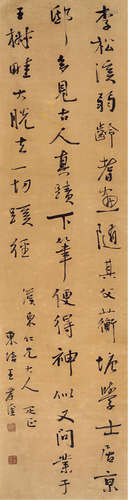 李松溪弱齡耆畫隨其父蘅塘學士居京
邸多見古人真蹟下筆便得神似又問業于
王樹畦大脫去一切蹊徑
漢泉仁兄大人正
東洤王